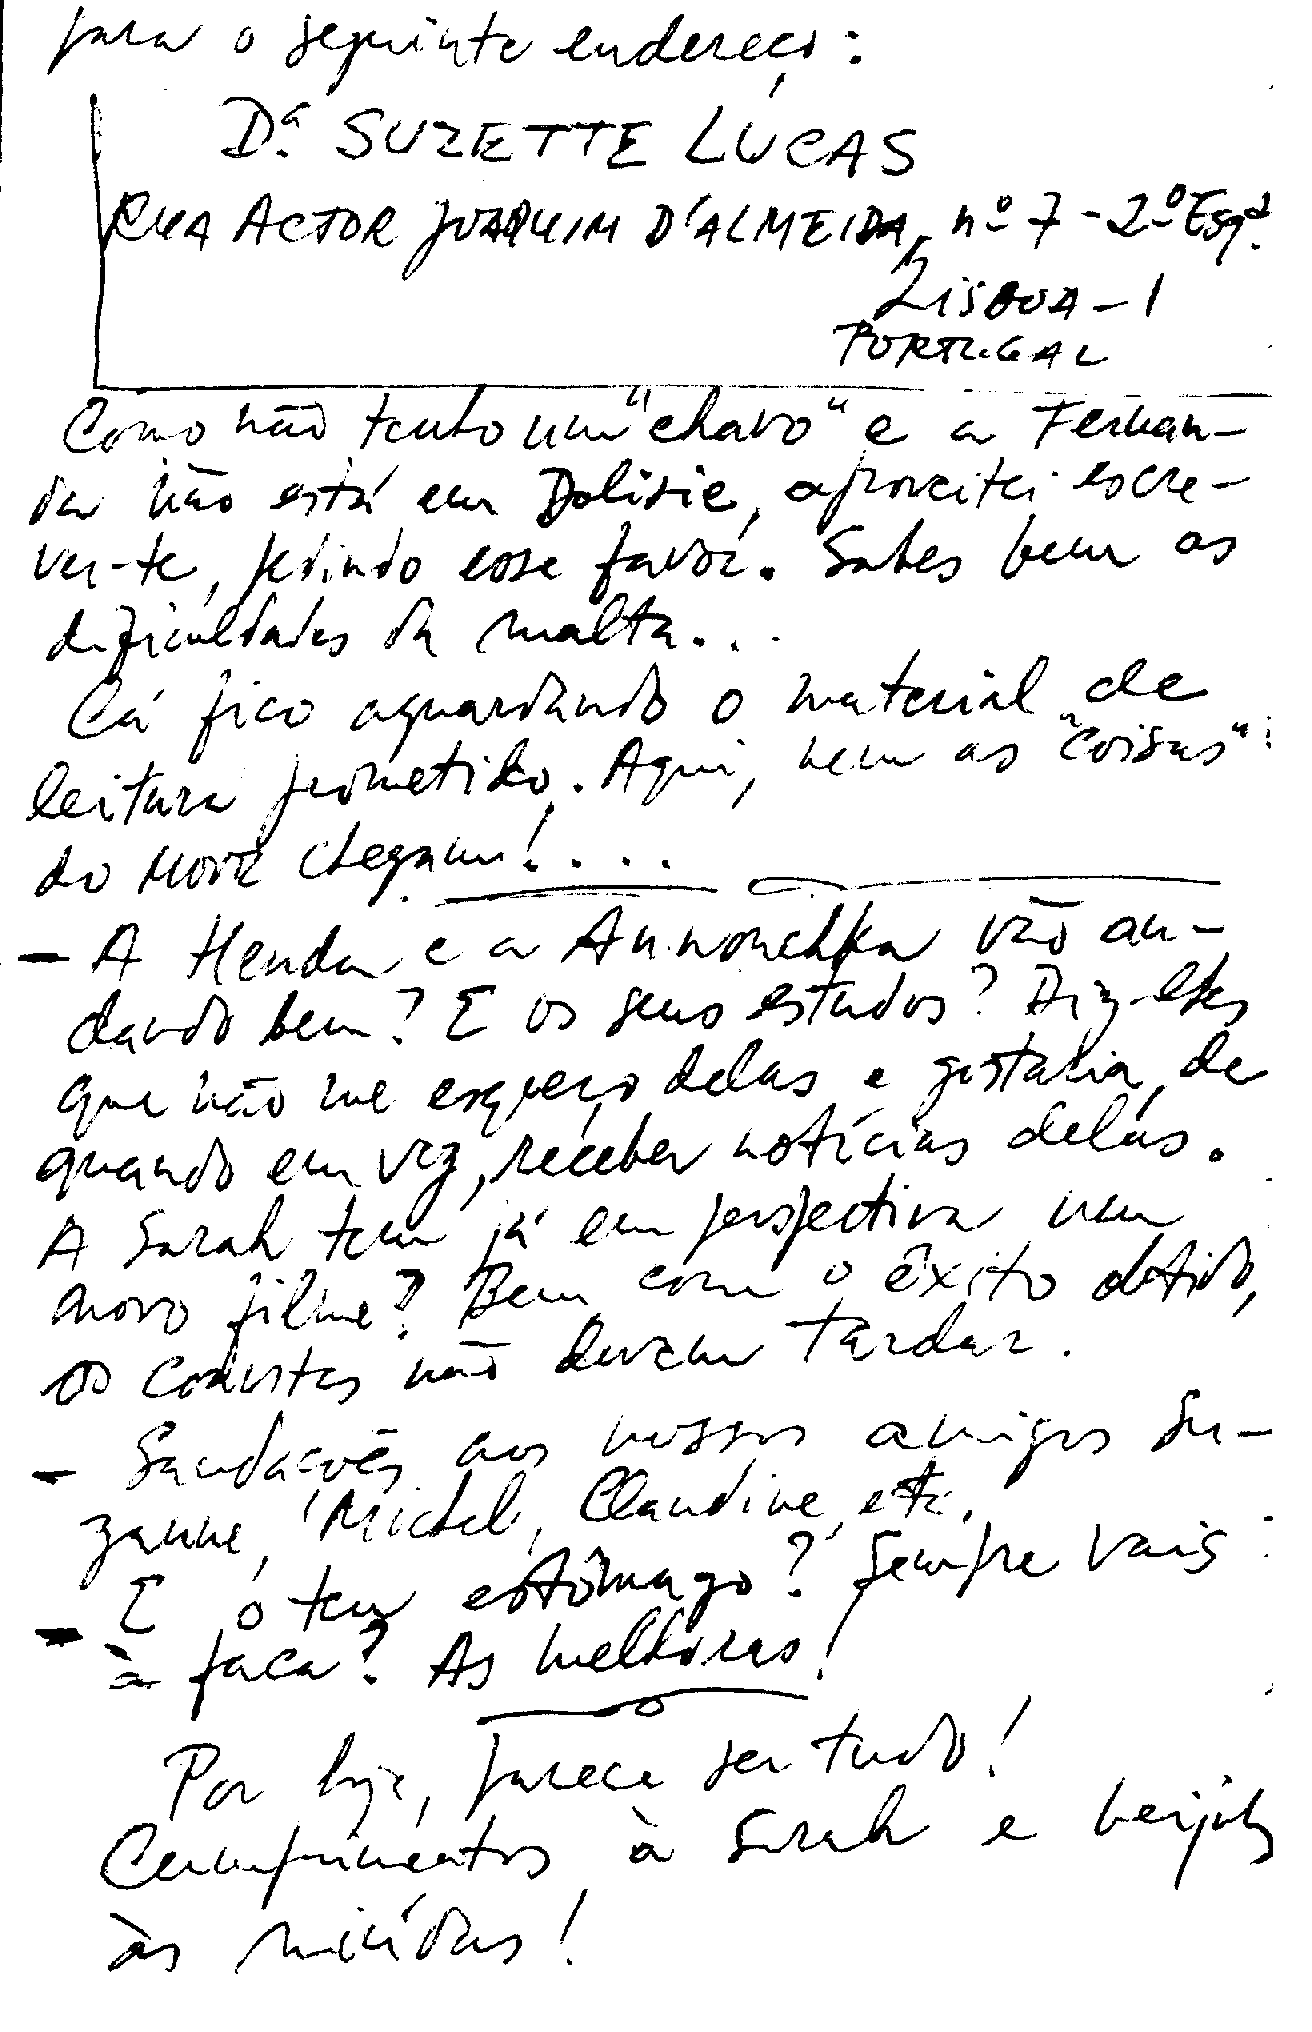 para o seguinte endereço:
Dª. SUZETTE LÚCAS
RUA ACTOR JOAQUIM D'ALMEIDA, nº 7 - 2º Esqº.
LISBOA - 1
PORTUGAL
Como não tenho um "chavo" e a Fernan-
da não está em Dolisie, aproveitei escre-
ver-te, pedindo esse favor. Sabes bem as
dificuldades da malta...
Cá fico aguardando o material de
leitura prometido. Aqui, nem as "coisas"
do MOVE chegam!...
- A Henda e a Annouchka vão an-
dando bem? E os seus estudos? Diz-lhes
que não me esqueço delas e gostaria, de
quando em vez, receber notícias delas.
A Sarah tem já em perspectiva um
novo filme? Bem, com o êxito obtido,
os convites não devem tardar.
- Saudações aos nossos amigos Su-
zanne, Michel, Claudine, etc.
- E o teu estômago? Sempre vais
à faca? As melhoras!
Por hoje, parece ser tudo!
Cumprimentos à Sarah e beijos
às miúdas!